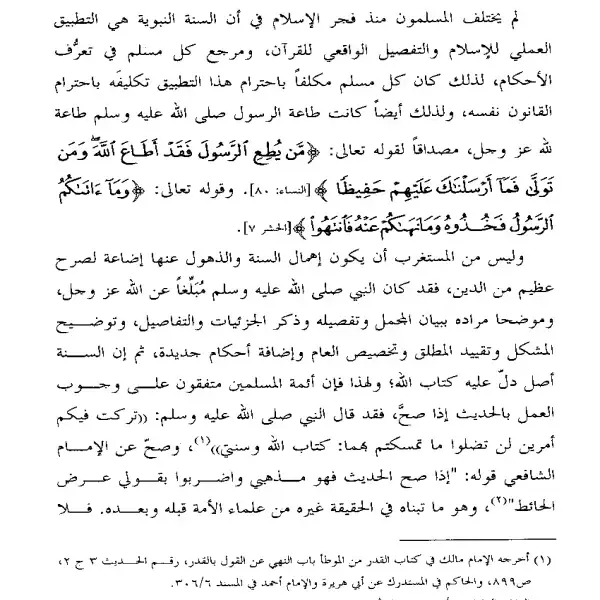 لم يختلف المسلمون منذ فجر الإسلام في أن السنة النبوية هي التطبيق
العملي للإسلام والتفصيل الواقعي للقرآن، ومرجع كل مسلم في تعرُّف
الأحكام، لذلك كان كل مسلم مكلفاً باحترام هذا التطبيق تكليفَه باحترام
القانون نفسه، ولذلك أيضاً كانت طاعة الرسول صلى الله عليه وسلم طاعة
لله عز وجل، مصداقاً لقوله تعالى: ﴿مَّن يُطِعِ ٱلرَّسُولَ فَقَدْ أَطَاعَ ٱللَّهَ ۖ وَمَن
تَوَلَّىٰ فَمَآ أَرْسَلْنَٰكَ عَلَيْهِمْ حَفِيظًا﴾ [النساء: ٨٠]. وقوله تعالى: ﴿وَمَآ ءَاتَىٰكُمُ
ٱلرَّسُولُ فَخُذُوهُ وَمَا نَهَىٰكُمْ عَنْهُ فَٱنتَهُوا۟﴾ [الحشر ٧].
وليس من المستغرب أن يكون إهمال السنة والذهول عنها إضاعة لصرح
عظيم من الدين، فقد كان النبي صلى الله عليه وسلم مُبَلِّغاً عن الله عز وجل،
وموضحا مراده ببيان المجمل وتفصيله وذكر الجزئيات والتفاصيل، وتوضيح
المشكل وتقييد المطلق وتخصيص العام وإضافة أحكام جديدة، ثم إن السنة
أصل دلّ عليه كتاب الله؛ ولهذا فإن أئمة المسلمين متفقون على وجوب
العمل بالحديث إذا صحَّ، فقد قال النبي صلى الله عليه وسلم: ((تركت فيكم
أمرين لن تضلوا ما تمسكتم بهما: كتاب الله وسنتي))(١)، وصحّ عن الإمام
الشافعي قوله: "إذا صح الحديث فهو مذهبي واضربوا بقولي عرض
الحائط"(٢)، وهو ما تبناه في الحقيقة غيره من علماء الأمة قبله وبعده. فلا
(١) أخرجه الإمام مالك في كتاب القدر من الموطأ باب النهي عن القول بالقدر، رقم الحديث ٣ ج ٢،
ص٨٩٩، والحاكم في المستدرك عن أبي هريرة والإمام أحمد في المسند ٣٠٦/٦.